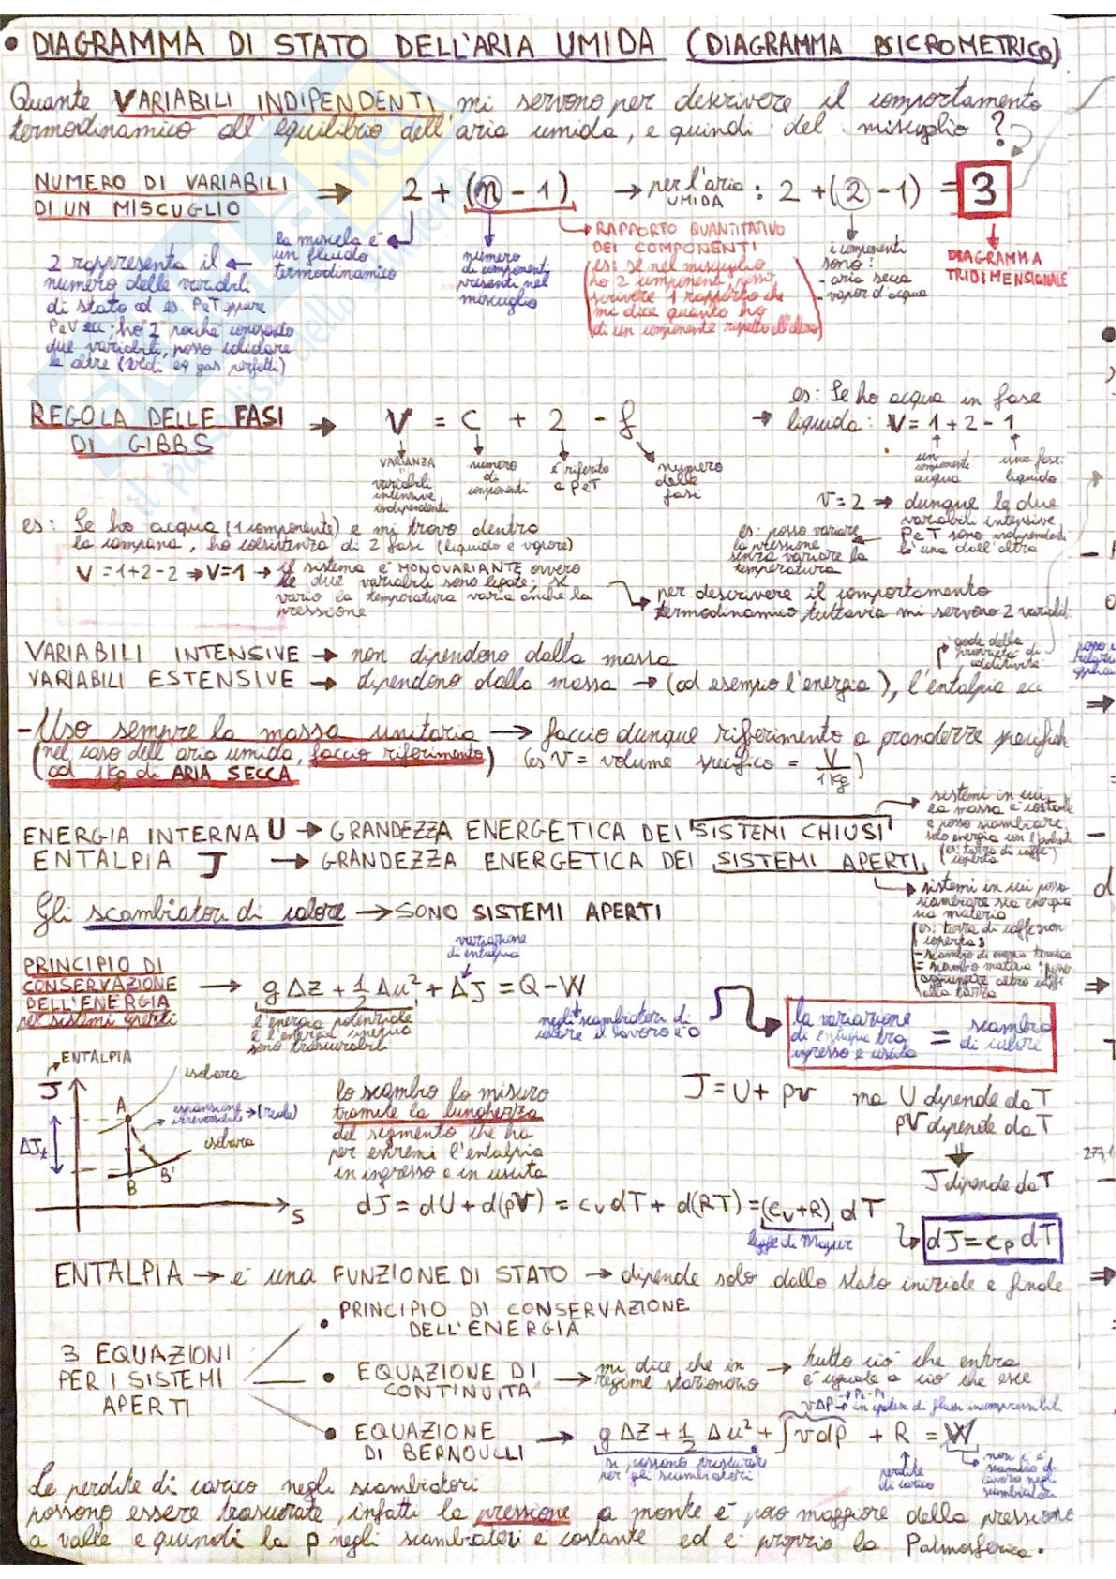 • DIAGRAMMA DI STATO DELL'ARIA UMIDA (DIAGRAMMA PSICROMETRICO)
Quante VARIABILI INDIPENDENTI mi servono per descrivere il comportamento
termodinamico all'equilibrio dell'aria umida, e quindi del miscuglio?
NUMERO DI VARIABILI
DI UN MISCUGLIO ⇒ 2 + (n - 1) → per l'aria UMIDA : 2 + (2 - 1) = 3
2 rappresenta il
numero delle variabili
di stato ad es. P e T oppure
P e V ecc. ho 2 poiché conoscendo
due variabili, posso calcolare
le altre (vedi eq gas perfetti)
la miscela è
un fluido
termodinamico
numero
di componenti
presenti nel
miscuglio
RAPPORTO QUANTITATIVO
DEI COMPONENTI
(es: se nel miscuglio
ho 2 componenti posso
scrivere 1 rapporto che
mi dice quanto ho
di un componente rispetto all'altro)
i componenti
sono:
- aria secca
- vapor d'acqua
DIAGRAMMA
TRIDIMENSIONALE
REGOLA DELLE FASI
DI GIBBS → V = C + 2 - f
VARIANZA
variabili
intensive
indipendenti
numero
di
componenti
è riferito
a P e T
numero
delle
fasi
→ es: Se ho acqua in fase
liquida: V = 1 + 2 - 1
un
componente
acqua
una fase:
liquida
V = 2 ⇒ dunque le due
variabili intensive
P e T sono indipendenti
l'una dall'altra
es: posso variare
la pressione
senza variare la
temperatura
es: Se ho acqua (1 componente) e mi trovo dentro
la campana, ho coesistenza di 2 fasi (liquido e vapore)
V = 1+2-2 ⇒ V=1 → il sistema è MONOVARIANTE ovvero
le due variabili sono legate: se
vario la temperatura varia anche la
pressione
per descrivere il comportamento
termodinamico, tuttavia mi servono 2 variabili
VARIABILI INTENSIVE → non dipendono dalla massa
VARIABILI ESTENSIVE → dipendono dalla massa → (ad esempio l'energia), l'entalpia ecc
gode della
proprietà di
additività
- Uso sempre la massa unitaria → faccio dunque riferimento a grandezze specifiche
(nel caso dell'aria umida, faccio riferimento) (es V = volume specifico = V/1kg)
ad 1 Kg di ARIA SECCA
ENERGIA INTERNA U → GRANDEZZA ENERGETICA DEI SISTEMI CHIUSI
ENTALPIA J → GRANDEZZA ENERGETICA DEI SISTEMI APERTI
sistemi in cui
la massa è costante
e posso scambiare
solo energia con l'ambiente
(es: tazza di caffè
coperta)
sistemi in cui posso
scambiare sia energia
sia materia
(es: tazza di caffè non
coperta;
- scambio di energia termica
= scambio materia: posso
aggiungere altro caffè
alla tazza
Gli scambiatori di calore → SONO SISTEMI APERTI
PRINCIPIO DI
CONSERVAZIONE
DELL'ENERGIA
per sistemi aperti
→ g ΔZ + 1/2 Δu² + ΔJ = Q - W
variazione
di entalpia
l'energia potenziale
e l'energia cinetica
sono trascurabili
negli scambiatori di
calore il lavoro è 0
la variazione
di entalpia tra
ingresso e uscita = scambio
di calore
ENTALPIA
J
isobara
A
espansione
irreversibile → (reale)
isobara
ΔJt
B
B'
S
lo scambio lo misuro
tramite la lunghezza
del segmento che ha
per estremi l'entalpia
in ingresso e in uscita
J = U + pv ma U dipende da T
pV dipende da T
J dipende da T
dJ = dU + d(pv) = cv dT + d(RT) = (cv + R) dT
legge di Mayer
dJ = cp dT
ENTALPIA → è una FUNZIONE DI STATO → dipende solo dallo stato iniziale e finale
3 EQUAZIONI
PER I SISTEMI
APERTI
• PRINCIPIO DI CONSERVAZIONE
DELL'ENERGIA
• EQUAZIONE DI
CONTINUITÀ → mi dice che in
regime stazionario → tutto ciò che entra
è uguale a ciò che esce
vΔP → in ipotesi di fluidi incomprimibili
• EQUAZIONE
DI BERNOULLI → g ΔZ + 1/2 Δu² + ∫vdp + R = W
si possono trascurare
per gli scambiatori
perdite
di carico
non c'è
scambio di
lavoro negli
scambiatori
Le perdite di carico negli scambiatori
possono essere trascurate, infatti la pressione a monte è poco maggiore della pressione
a valle e quindi la p negli scambiatori è costante ed è proprio la Patmosferica.